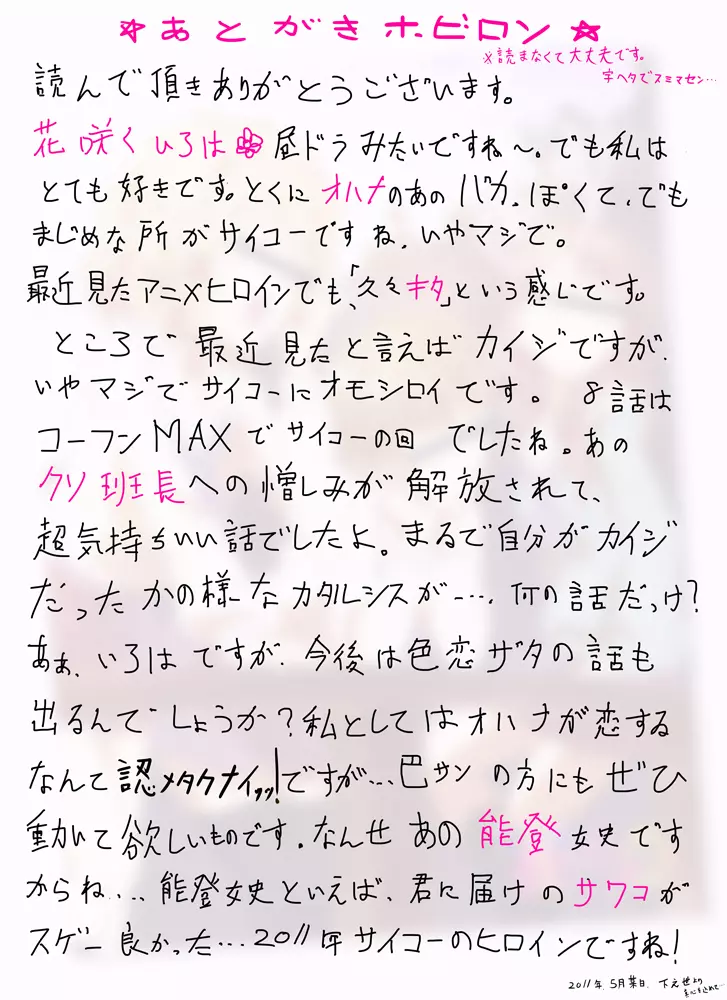 ☆あとがきホビロン☆
※読まなくて大丈夫です。
字ヘタでスミマセン…
読んで頂きありがとうございます。
花咲くいろは 昼ドラみたいですね〜。でも私は
とても好きです。とくにオハナのあのバカっぽくて、でも
まじめな所がサイコーですね、いやマジで。
最近見たアニメヒロインでも、「久々キタ」という感じです。
ところで最近見たと言えばカイジですが、
いやマジでサイコーにオモシロイです。 8話は
コーフンMAXでサイコーの回でしたね。あの
クソ班長への憎しみが解放されて、
超気持ちいい話でしたよ。まるで自分がカイジ
だったかの様なカタルシスが…、何の話だっけ?
あぁ、いろはですが、今後は色恋ザタの話も
出るんでしょうか?私としてはオハナが恋する
なんて認メタクナイッッ!ですが…巴サンの方にもぜひ
動いて欲しいものです。なんせあの能登女史です
からね…、能登女史といえば、君に届けのサワコが
スゲー良かった…2011年サイコーのヒロインですね!
2011年 5月某日